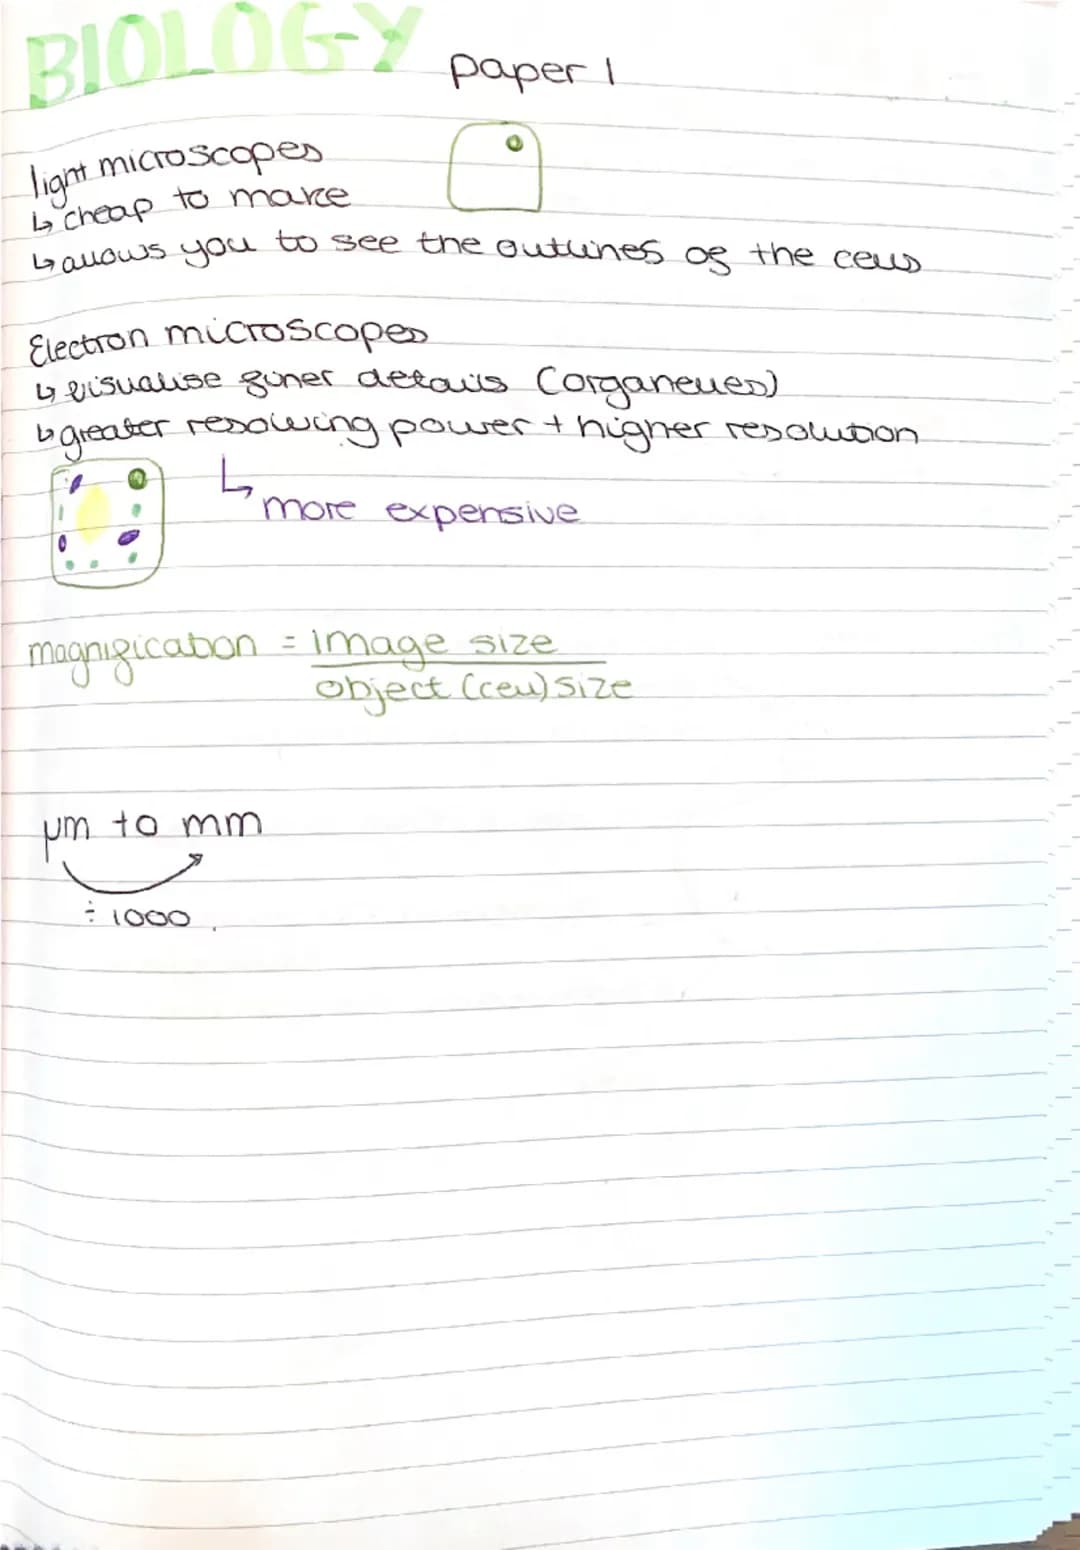 BIOLOGY paper 1
light microscopes
↳ cheap to make
↳ allows you to see the outlines of the cells
Electron microscopes
↳ visualise finer details (organelles)
↳ greater resolving power + higher resolution
↳ more expensive
magnification = image size
object (cell) size
µm to mm
÷ 1000